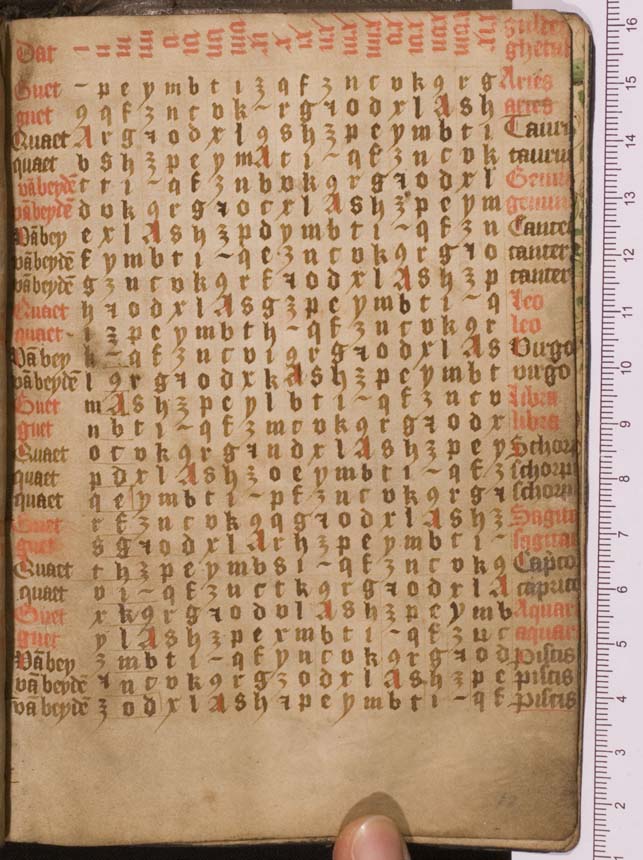 Guet - p e y m b t i z q f z n t v k 9 r g Aries
guet 9 q f z n t v k - r g a o d x l A s h aries
Quaet A r g a o d x l 9 s h z p e y m b t i Taur
quaet b s h z p e y m A t i - q f z n t v k tauru
vābeydē t t i - q f z n b v k 9 r g a o d x l Gemi
vābeydē d v k 9 r g a o t x l A s h z p e y m gemini
Vābey e x l A s h z p d y m b t i - q f z n Cancer
vābeydē f y m b t i - q e z n t v k 9 r g a o cancer
vābeydē g z n t v k 9 r f a o d x l A s h z p cancer
Quaet h a o d x l A s g z p e y m b t i - q leo
quaet i z p e y m b t h - q f z n t v k 9 r leo
Vābey k - q f z n t v i 9 r g a o d x l A s Virgo
vābeydē l 9 r g a o d x k A s h z p e y m b t virgo
Guet m A s h z p e y l b t i - q f z n t v libra
guet n b t i - q f z m t v k 9 r g a o d x libra
Quaet o t v k 9 r g a n d x l A s h z p e y Schorp
quaet p d x l A s h z o e y m b t i - q f z schorp
quaet q e y m b t i - p f z n t v k 9 r g a schorp
Guet r f z n t v k 9 q g a o d x l A s h z Sagit
guet s g a o d x l A r h z p e y m b t i - sagittar
Quaet t h z p e y m b s i - q f z n t v k 9 Capico
quaet v i - q f z n t t k 9 r g a o d x l A caprico
Guet x k 9 r g a o d v l A s h z p e y m b Aquar
guet y l A s h z p e x m b t i - q f z n t aquar
Vābey z m b t i - q f y n t v k 9 r g a o d piscis
vābeydē a n t v k 9 r g z o d x l A s h z p e piscis
vābeydē z o d x l A s h a p e y m b t i - q f piscis